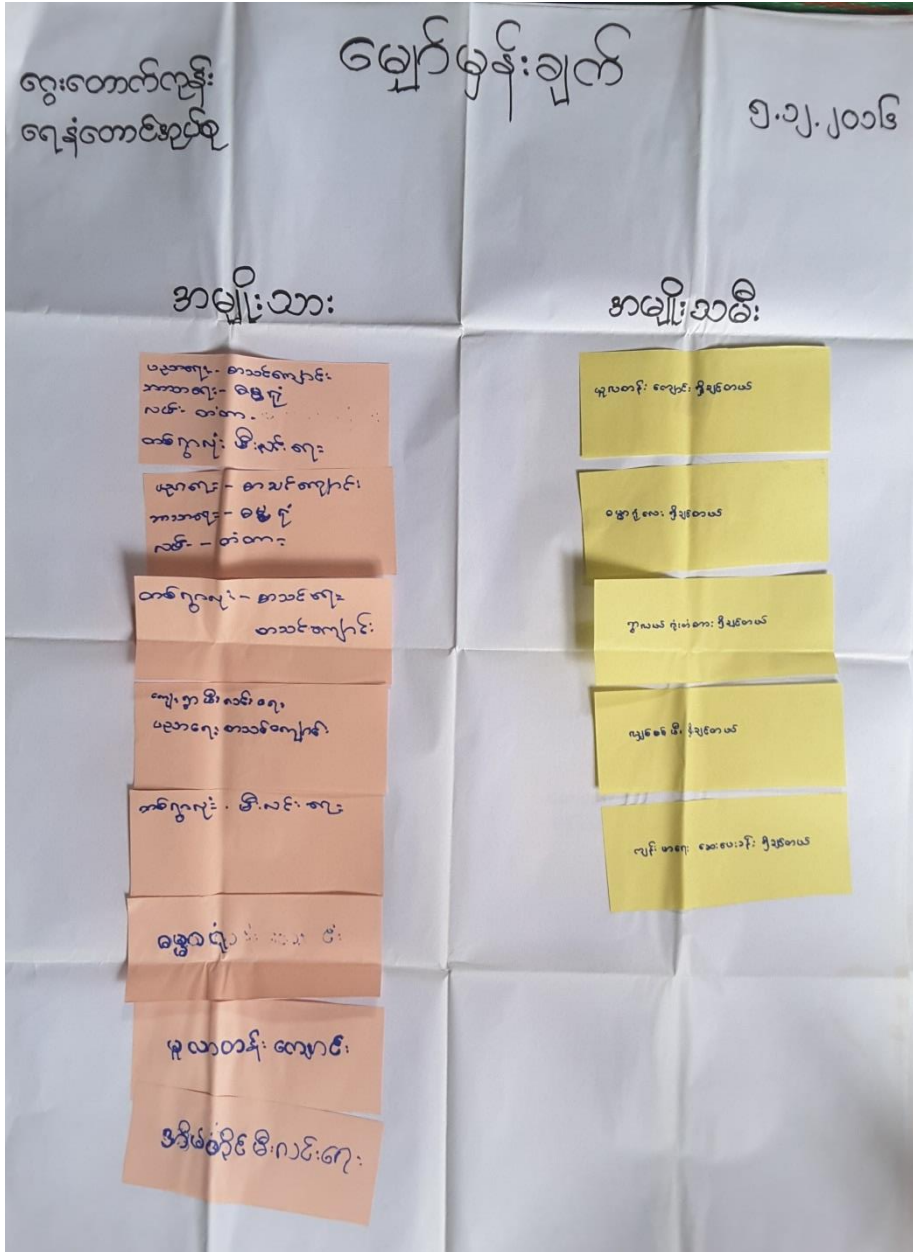 မျှော်မှန်းချက်
ငွေးတောက်ကုန်း
ရေနံတောင်အုပ်စု
၅.၁၂.၂၀၁၆
အမျိုးသား
ပညာရေး - စာသင်ကျောင်း
ဘာသာရေး - ဓမ္မရုံ
လမ်း - တံတား
တစ်ရွာလုံး မီးလင်းရေး
ပညာရေး - စာသင်ကျောင်း
ဘာသာရေး - ဓမ္မရုံ
လမ်း - တံတား
တစ်ရွာလုံး - စာသင်ရေး
စာသင်ကျောင်း
ကျေးရွာ မီးလင်းရေး
ပညာရေး စာသင်ကျောင်း
တစ်ရွာလုံး . မီးလင်းရေး
မူလတန်း ကျောင်း
အိမ်တိုင် မီးလင်းရေး
အမျိုးသမီး
မူလတန်း ကျောင်း ရှိချင်တယ်
ဓမ္မာရုံလေး ရှိချင်တယ်
ရွာလယ် ကူးတံတား ရှိချင်တယ်
လျှပ်စစ် မီး ရှိချင်တယ်
ကျန်းမာရေး ဆေးပေးခန်း ရှိချင်တယ်